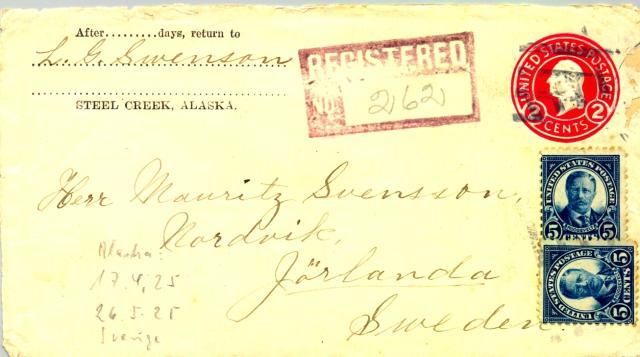 After.........days, return to
L. G. Swenson
STEEL CREEK, ALASKA.
REGISTERED
NO. 262
UNITED STATES POSTAGE
2 CENTS 2
Herr Mauritz Svensson,
Nordvik,
Jörlanda
Sweden.
Alaska:
17.4.25
26.5.25
Sverige
UNITED STATES POSTAGE
ROOSEVELT
5 CENTS 5
UNITED STATES POSTAGE
5 CENTS 5